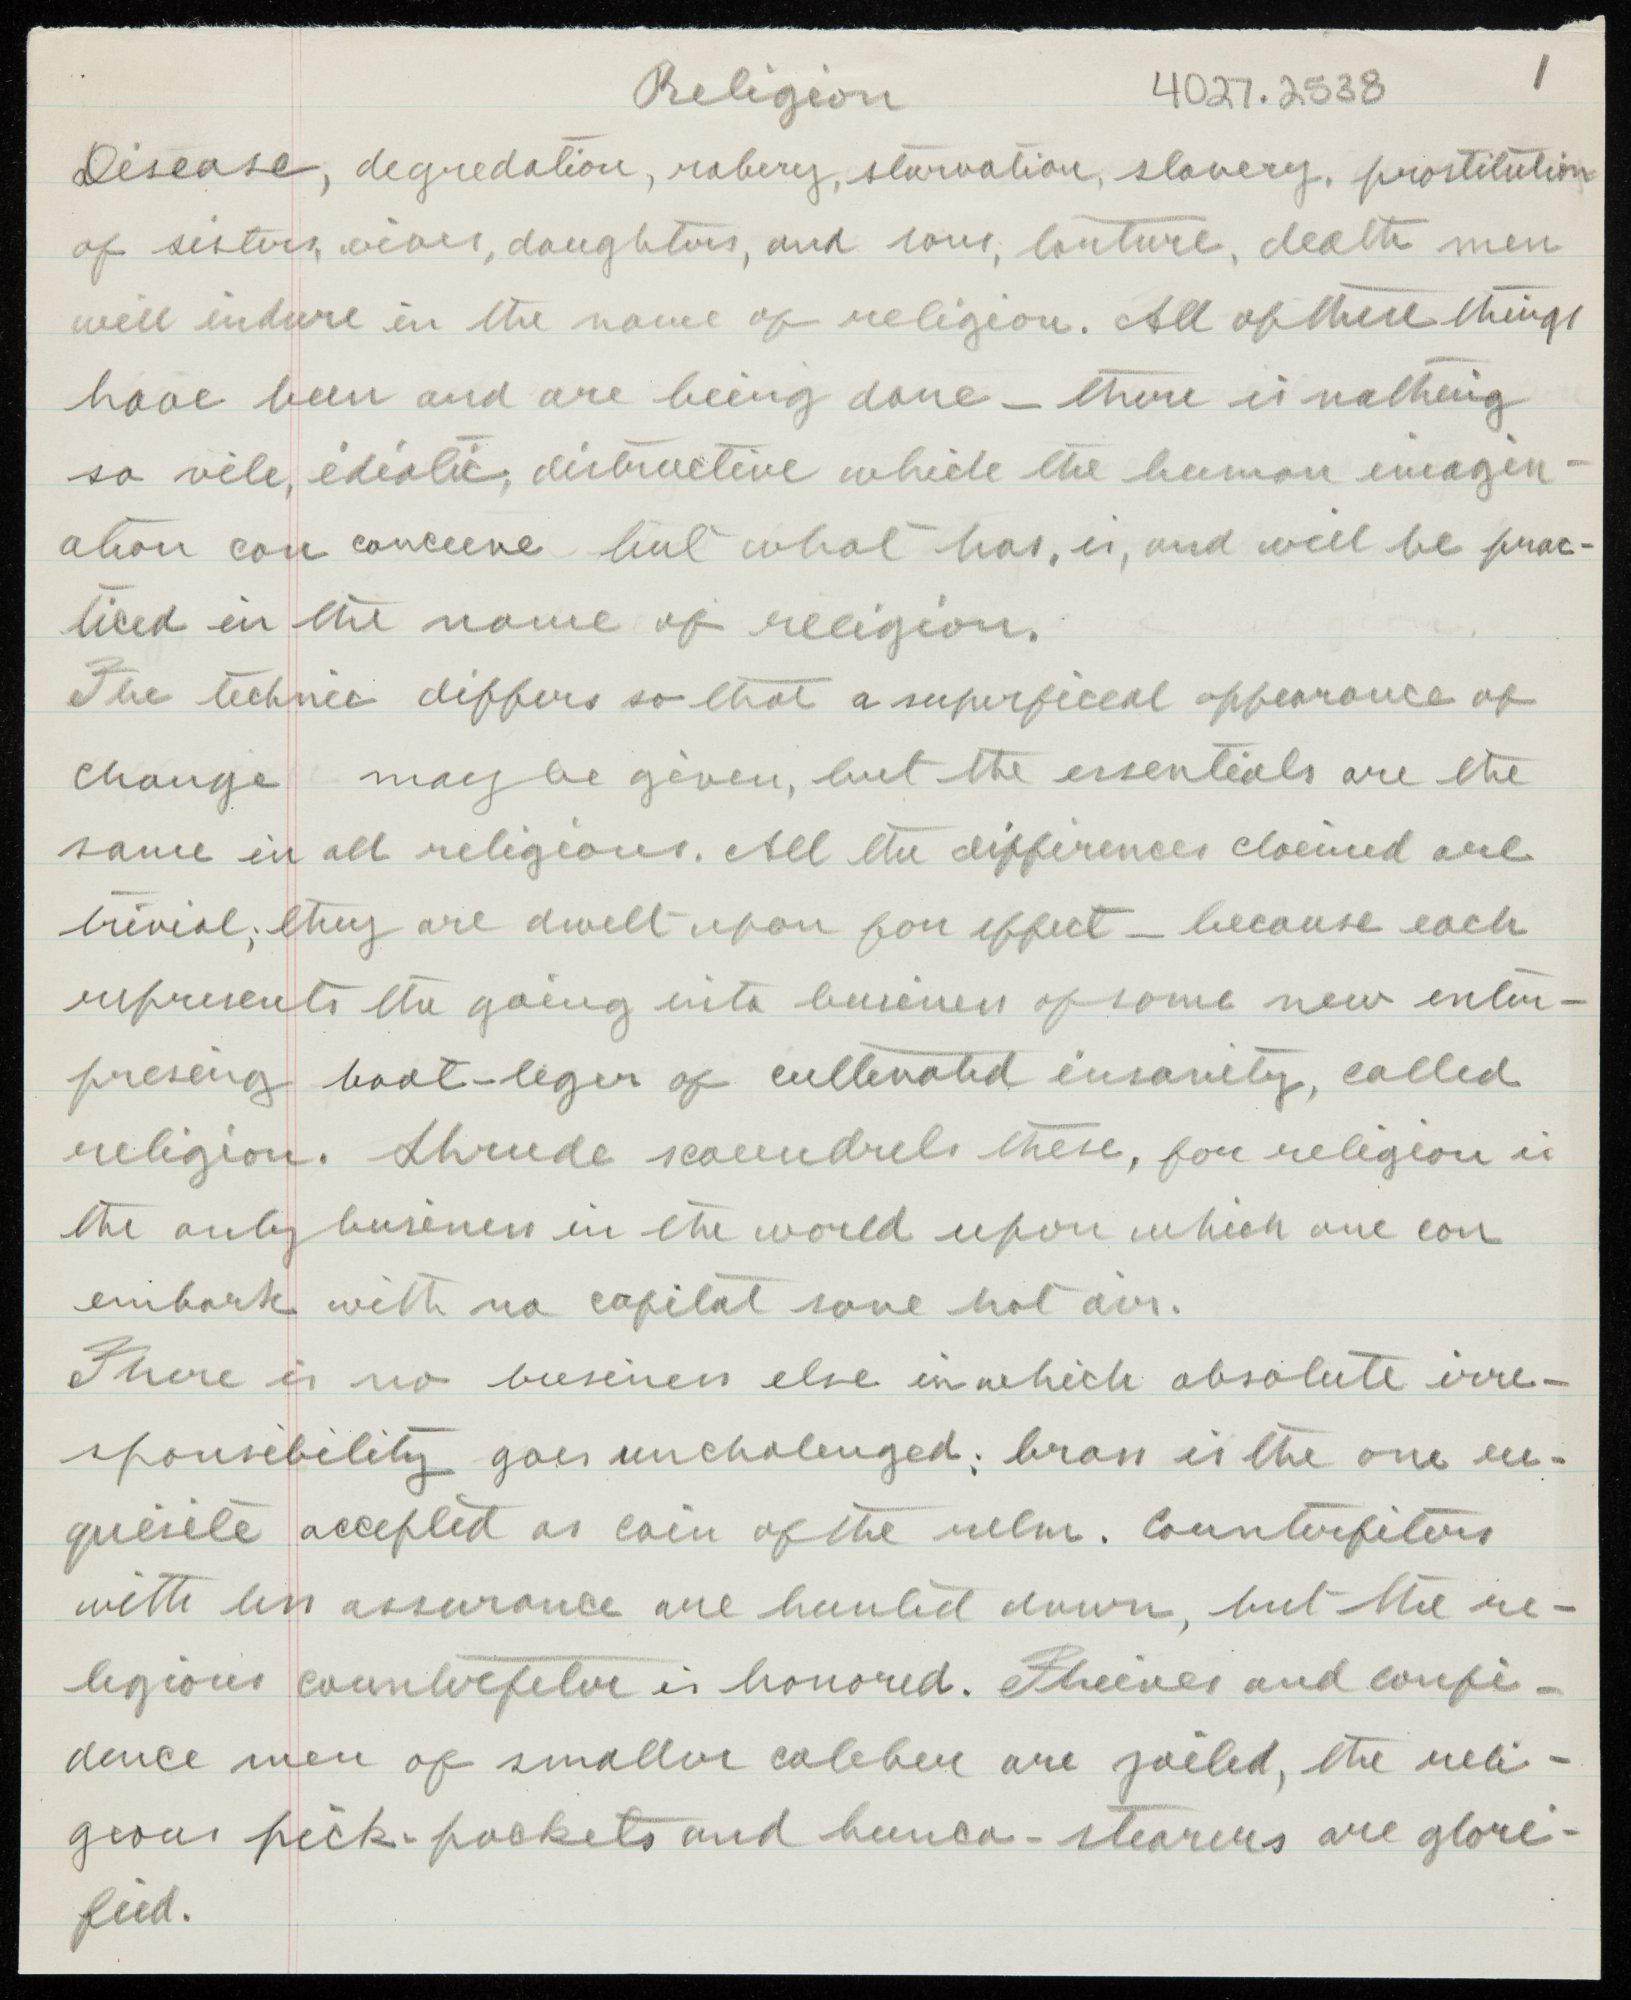 Religion 4027.2538 1
Disease, degredation, robery, starvation, slavery, prostitution
of sisters, wives, daughters, and sons, torture, death men
will indure in the name of religion. All of these things
have been and are being done — there is nothing
so vile, idiotic, distructive which the human imagin-
ation can conceive but what has, is, and will be prac-
ticed in the name of religion.
The technic differs so that a superficeal appearance of
change may be given, but the essentials are the
same in all religions. All the differences claimed are
trivial; they are dwelt upon for effect — because each
represents the going into business of some new enter-
presing boot-leger of cultivated insanity, called
religion. Shrude scoundrels these, for religion is
the only business in the world upon which one can
embark with no capital save hot air.
There is no business else in which absolute irre-
sponsibility goes unchalenged; brass is the one re-
quisite accepted as coin of the relm. Counterfiters
with less assurance are hunted down, but the re-
ligious counterfeter is honored. Theives and confi-
dence men of smaller caleber are jailed, the reli-
geous pick-pockets and bunco-stearers are glori-
fied.